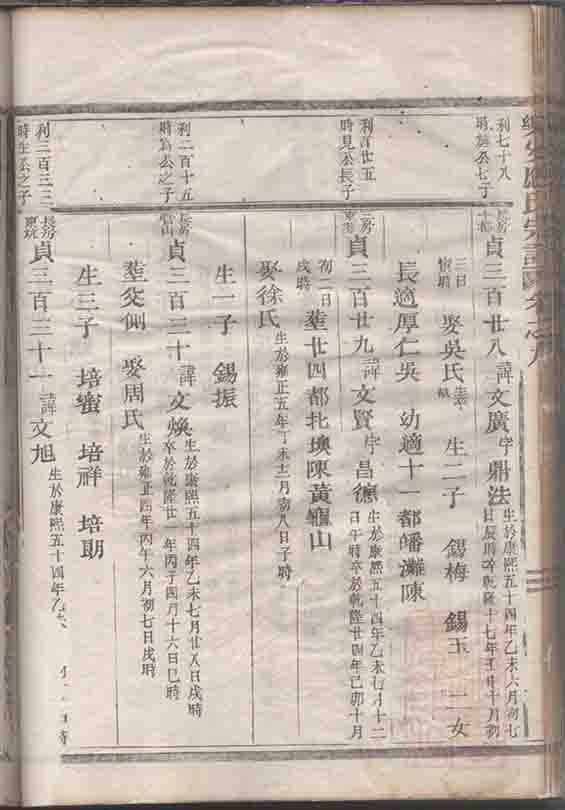 利七十八
時
公七子
長房
貞三百廿八
諱文廣
字鼎法
生於康熙五十四年乙未六月初七
日辰時卒乾隆十七年壬申十月初
三日
時
娶吳氏
生二子 錫梅 錫玉 二女
長適厚仁吳 幼適十一都皤灘陳
時見公長子
貞三百廿九
諱文賢
字昌德
生於康熙五十四年乙未七月十二
日午時卒於乾隆廿四年己卯十月
初二日
戌時
塟廿四都
陳黃龜山
娶徐氏
生於雍正五年丁未十一月初八日子時
生一子 錫振
利二百十五
時為公之子
長房
貞三百三十
諱文煥
生於康熙五十四年乙未七月廿八日戌時
卒於乾隆廿一年丙子四月十六日巳時
塟父側 娶周氏
生於雍正四年丙午六月初七日戌時
生三子 培蜜 培祥 培明
利三百三三
時生公之子
長房
貞三百三十一
諱文旭
生於康熙五十四年乙